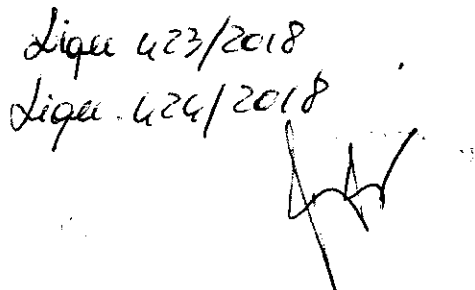 Liqu 423/2018
Liqu. 424/2018